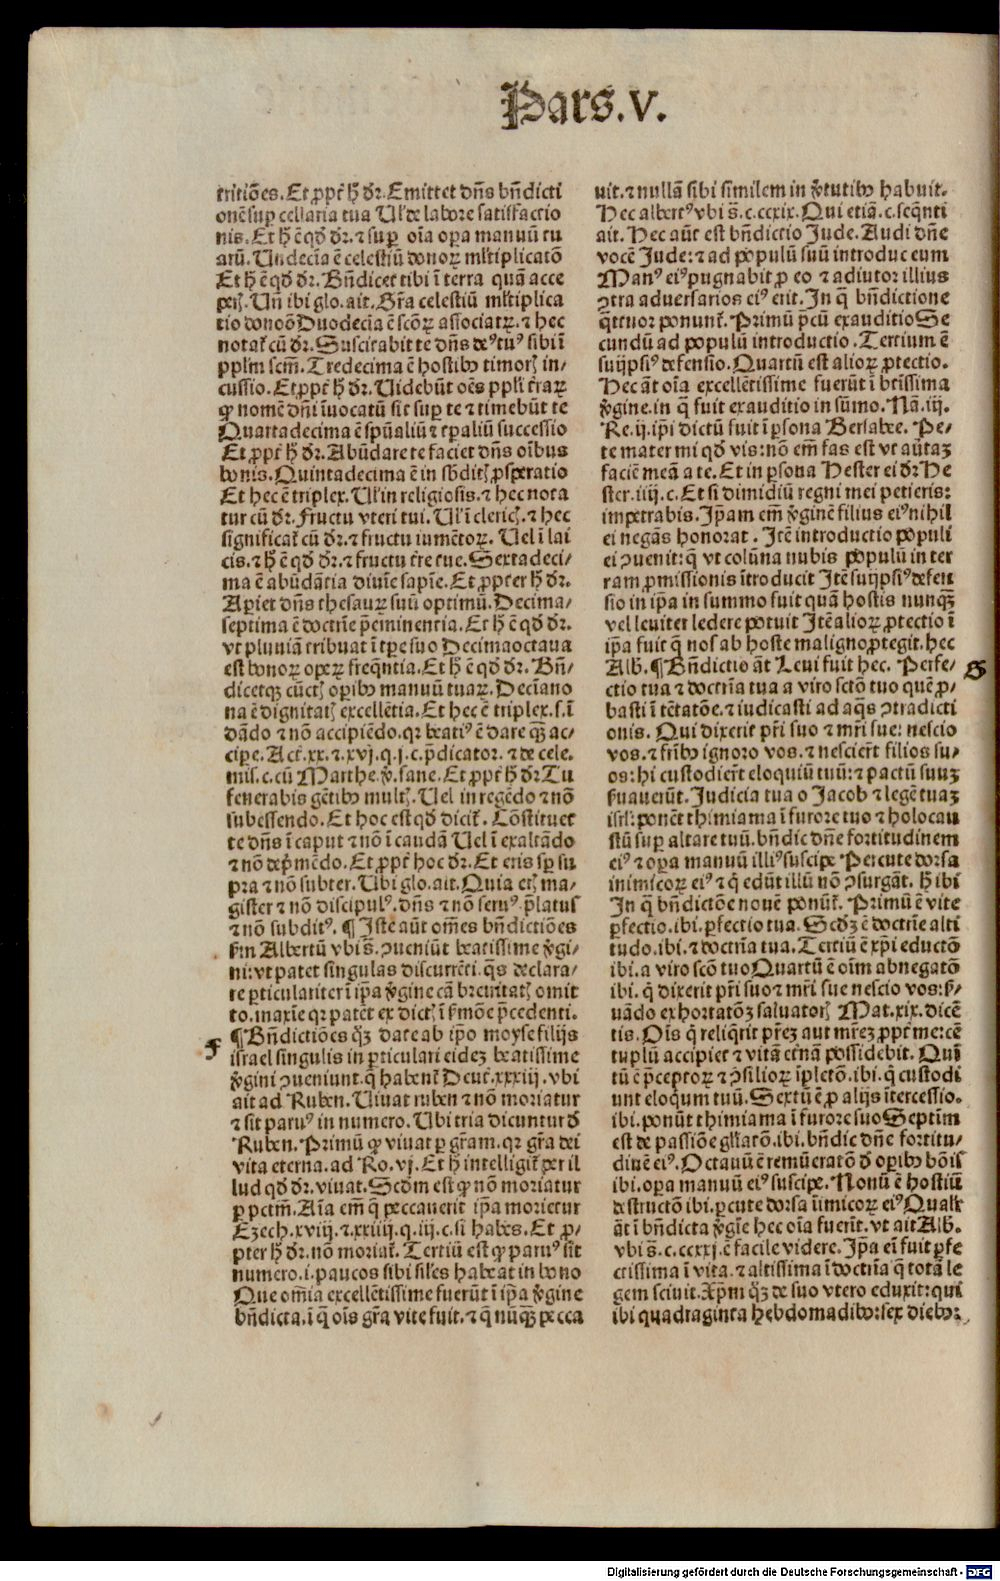 Pars.V.
tritiões. Et ꝓpt̉ hͦ dr̃. Emittet dñs bñdicti
onē suꝑ cellaria tua Ul̓ de labore satisfactio
nis. Et hͦ ē qd̓ dr̃. ⁊ suꝑ oĩa oꝑa manuũ tu
aꝝ. Undecĩa ē celestiũ donoꝝ ml̓tiplicatõ
Et hͦ ē qd̓ dr̃. Bñdicet tibi ĩ terra quã acce
peris. Uñ ibi glo. ait. Gr̃a celestiũ ml̓tiplica
tio donoõ Duodecĩa ē scõꝝ associatꝝ. ⁊ hec
notat̉ cũ dr̃. Suscitabit te dñs deꝰ tuꝰ sibi ĩ
ppl̓m scm̃. Tredecima ē hostibꝰ timoris in-
cussio. Et ꝓpt̉ hͦ dr̃. Videbũt oẽs ppl̓i t̉raꝝ
ꝙ nomē dñi ĩuocatũ sit suꝑ te ⁊ timebũt te
Quartadecima ē spũaliũ ⁊ tꝑaliũ successio
Et ꝓpt̉ hͦ dr̃. Abũdare te faciet dñs oĩbus
bonis. Quintadecima ē in sb̓ditis ꝓsperatio
Et hec ē triplex. Ul̓ in religiosis. ⁊ hec nota
tur cũ dr̃. Fructu vteri tui. Ul̓ ĩ clericis. ⁊ hec
significat̉ cũ dr̃. ⁊ fructu iumẽtoꝝ. Uel ĩ lai
cis. ⁊ hͦ ē qd̓ dr̃. ⁊ fructu t̉re tue. Sextadeci-
ma ē abũdãtia diuĩe sapiẽ. Et ꝓpter hͦ dr̃.
Aꝑiet dñs thesauꝝ suũ optimũ. Decima-
septima ē doctrĩe p̃eminentia. Et hͦ ē qd̓ dr̃.
vt pluuiã tribuat ĩ tꝑe suo Decimaoctaua
est bonoꝝ oꝑeꝝ freq̃ntia. Et hͦ ē qd̓ dr̃. Bñ-
dicetqꝫ cũctis oꝑibꝰ manuũ tuaꝝ. Deciano
na ē dignitatis excellẽtia. Et hec ē triplex. s. ĩ
dãdo ⁊ nõ accipiẽdo. qꝛ beatiꝰ ē dare qȝ̃ ac-
cipe. Act̉. xx. ⁊ .xvj. q. j. c. p̃dicator. ⁊ de cele.
mis. c. cũ Marthe. ṽ. sane. Et ꝓpt̉ hͦ dr̃ Tu
fenerabis gẽtibꝰ multis. Uel in regẽdo ⁊ nõ
subessendo. Et hoc est qd̓ dicit̉. Cõstituet
te dñs ĩ caput ⁊ nõ ĩ caudã Uel ĩ exaltãdo
⁊ nõ dep̃mẽdo. Et ꝓpt̉ hoc dr̃. Et eris sꝑ su
pra ⁊ nõ subter. Ubi glo. ait. Quia eris ma-
gister ⁊ nõ discipulꝰ. dñs ⁊ nõ seruꝰ. p̃latus
⁊ nõ subditꝰ. ¶ Iste aũt om̃es bñdictiões
ẜm Albertũ vbi s̃. ꝯueniũt beatissime v̓gi-
ni: vt patet singulas discurrẽti. q̃s declara-
re ꝑticulariter ĩ ipa v̓gine cã breuitatis omit
to. maxĩe qꝛ patẽt ex dictis ĩ ẜmõe p̃cedenti.
¶ Bñdictiões qȝ̃ date ab ipõ moyse filijs
israel singulis in ꝑticulari eidez beatissime
v̓gini ꝯueniunt. q̃ habent̉ Deut̉. xxxiij. vbi
ait ad Ruben. Viuat ruben ⁊ nõ moriatur
⁊ sit paruꝰ in numero. Ubi tria dicuntur ď
Ruben. Primũ ꝙ viuat ꝑ gr̃am. qꝛ gr̃a dei
vita eterna. ad Ro. vj. Et hͦ intelligit̉ per il
lud qd̓ dr̃. viuat. Scd̓m est ꝙ nõ moriatur
ꝑ pctm̃. Aĩa em̃ q̃ peccauerit ipa morietur
Ezech. xviij. ⁊ .xxiiij. q. iij. c. si habes. Et ꝓ-
pter hͦ dr̃. nõ moriat̉. Tertiũ est ꝙ paruꝰ sit
numero. i. paucos sibi sil̓es habeat in bono
Que om̃ia excellẽtissime fuerũt ĩ ipa v̓gine
bñdicta. ĩ q̃ oĩs gr̃a vite fuit. ⁊ q̃ nũqȝ̃ pecca
f
uit. ⁊ nullã sibi similem in v̓tutibꝰ habuit.
Hec albertꝰ vbi s̃. c. ccxix. Qui etiã. c. seq̃nti
ait. Hec aũt est bñdictio Jude. Audi dñe
vocẽ Jude: ⁊ ad populũ suũ introduc eum
Manꝰ eiꝰ pugnabit ꝓ eo ⁊ adiutor illius
ꝯtra aduersarios eiꝰ erit. In q̃ bñdictione
q̃ttuor ponunt̉. Primũ p̃cũ exauditio Se
cundũ ad populũ introductio. Tertium ē
suijpsiꝰ defensio. Quartũ est alioꝝ ꝓtectio.
Hec ãt oĩa excellẽtissime fuerũt ĩ btĩssima
v̓gine. in q̃ fuit exauditio in sũmo. Nã. iij.
Re. ij. ipi dictũ fuit ĩ ꝑsona Bersabee. Pe-
te mater mi qd̓ vis: nõ em̃ fas est vt aũtaz
faciẽ meã a te. Et in ꝑsona Hester ei dr̃ He
ster. iiij. c. Et si dimidiũ regni mei petieris:
impetrabis. Ipam em̃ v̓ginẽ filius eiꝰ nihil
ei negãs honorat. Itẽ introductio populi
ei ꝯuenit: q̃ vt colũna nubis populũ in ter
ram ꝓmissionis ĩtroducit Itẽ suijpsiꝰ defen
sio in ipa in summo fuit quã hostis nunqȝ̃
vel leuiter ledere potuit Itẽ alioꝝ ꝓtectio ĩ
ipa fuit q̃ nos ab hoste maligno ꝓtegit. hec
Alb̓. ¶ Bñdictio ãt Leui fuit hec. Perfe-
ctio tua ⁊ doctrĩa tua a viro scõ tuo quẽ ꝓ-
basti ĩ tẽtatõe. ⁊ iudicasti ad aq̃s ꝯtradicti
onis. Qui dixerit pr̃i suo ⁊ mr̃i sue: nescio
vos. ⁊ fr̃ibꝰ ignoro vos. ⁊ nescierũt filios su-
os: hi custodierũt eloquiũ tuũ: ⁊ pactũ suuz
ẜuauerũt. Judicia tua o Jacob ⁊ legẽ tuaz
isrl̓: ponẽt thimiama ĩ furore tuo ⁊ holocau
stũ suꝑ altare tuũ. bñdic dñe fortitudinem
eiꝰ ⁊ oꝑa manuũ illiꝰ suscipe Percute dorsa
inimicoꝝ eiꝰ ⁊ q̃ edũt illũ nõ ꝯsurgãt. hͦ ibi
In q̃ bñdictõe nouẽ ponũt̉. Primũ ē vite
ꝑfectio. ibi. ꝑfectio tua. Scd̓ȝ ē doctrĩe alti
tudo. ibi. ⁊ doctrĩa tua. Tertiũ ē xp̃i eductõ
ibi. a viro scõ tuo Quartũ ē oĩm abnegatõ
ibi. q̃ dixerit pr̃i suo ⁊ mr̃i sue nescio vos: ẜ-
uãdo exhortatõȝ saluatoris Mat. xix. dicẽ
tis. Oĩs q̃ reliq̃rit pr̃ez aut mr̃ez ꝓpt̉ me: cẽ
tuplũ accipiet ⁊ vitã et̉nã possidebit. Quĩ
tũ ē p̃ceptoꝝ ⁊ ꝯsilioꝝ ĩpletõ. ibi. q̃ custodi
unt eloq̃um tuũ. Sextũ ē ꝓ alijs ĩtercessio.
ibi. ponũt thimiama ĩ furore suo Septĩm
est de passiõe gl̓iatõ. ibi. bñdic dñe fortitu-
dinẽ eiꝰ. Octauũ ē remũeratõ ď oꝑibꝰ bõis
ibi. oꝑa manuũ eiꝰ suscipe. Nonũ ē hostiũ
destructõ ibi. ꝑcute dorsa ĩimicoꝝ eiꝰ Qualr̃
ãt ĩ bñdicta v̓gĩe hec oĩa fuerĩt. vt ait Alb̓.
vbi s̃. c. ccxxj. ē facile videre. Ipa eĩ fuit ꝑfe
ctissima ĩ vita. ⁊ altissima ĩ doctrĩa q̃ totã le
gem sciuit. Xp̃m qȝ̃ de suo vtero eduxit: qui
ibi quadraginta hebdomadibꝰ: sex diebꝰ:
g
Digitalisierung gefördert durch die Deutsche Forschungsgemeinschaft - DFG